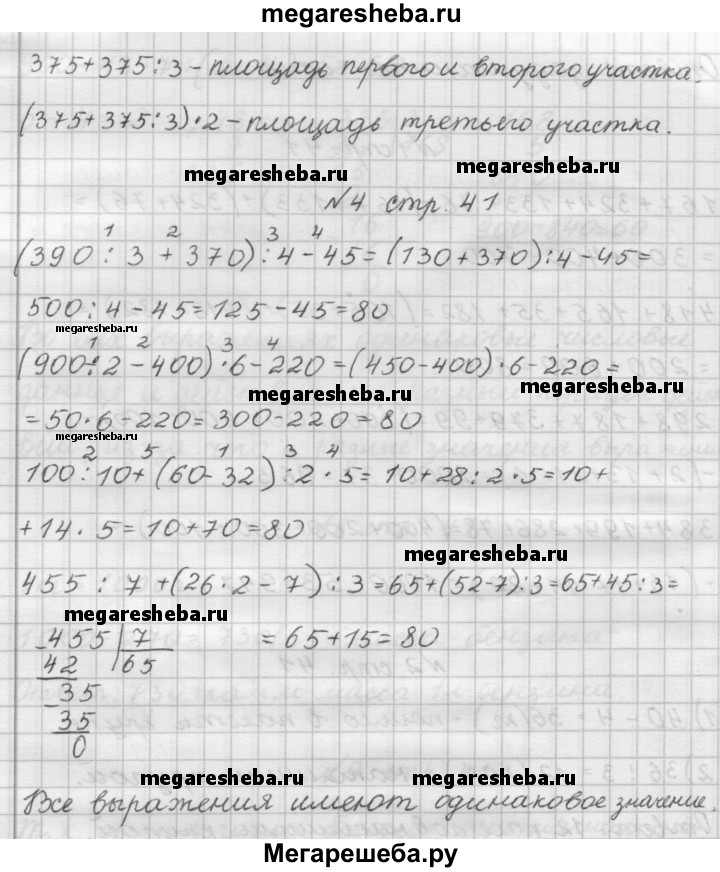 megaresheba.ru
375+375:3 - площадь первого и второго участка.
(375+375:3)·2 - площадь третьего участка.
megaresheba.ru
megaresheba.ru
№4 стр. 41
1 2 3 4
(390 : 3 + 370) : 4 - 45 = (130 + 370) : 4 - 45 =
500 : 4 - 45 = 125 - 45 = 80
megaresheba.ru
1 2 3 4
(900:2 - 400)·6 - 220 = (450-400)·6 - 220 =
megaresheba.ru
megaresheba.ru
= 50·6 - 220 = 300 - 220 = 80
megaresheba.ru
2 5 1 3 4
100 : 10 + (60 - 32) : 2 · 5 = 10 + 28 : 2 · 5 = 10 +
+ 14 · 5 = 10 + 70 = 80
megaresheba.ru
455 : 7 + (26·2 - 7) : 3 = 65 + (52-7):3 = 65 + 45:3 =
megaresheba.ru
455 | 7 = 65 + 15 = 80
42 65
- 35
35
0
megaresheba.ru
megaresheba.ru
Все выражения имеют одинаковое значение.
Мегарешеба.ру